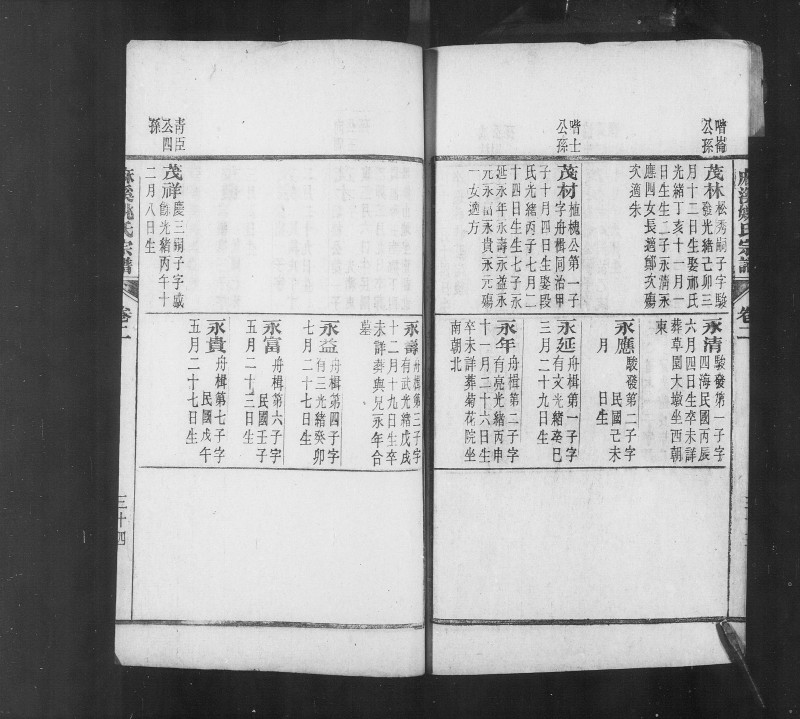 麻溪姚氏宗譜
卷二
喈崙
公孫
茂林松秀嗣子字駿
發光緒己卯三
月十二日生娶祁氏
光緒丁亥十一月一
日生生二子永清永
應四女長適鄒次殤
次適朱
永清駿發第一子字
四海民國丙辰
六月四日生卒未詳
葬草園大墩坐西朝
東
永應駿發第二子字
民國己未
月 日生
喈士
公孫
茂材植槐公第一子
字舟楫同治甲
子十月四日生娶段
氏光緒丙子七月二
十四日生生七子永
延永年永壽永益永
元永富永貴永元殤
一女適方
永延舟楫第一子字
有文光緒癸巳
三月二十九日生
永年舟楫第二子字
有亮光緒丙申
十一月二十六日生
卒未詳葬菊花院坐
南朝北
永壽舟楫第三子字
有武光緒戊戌
十二月十九日生卒
未詳葬與兄永年合
墓
永益舟楫第四子字
有三光緒癸卯
七月二十七日生
永富舟楫第六子字
民國壬子
五月二十三日生
永貴舟楫第七子字
民國戊午
五月二十七日生
青臣
公四
孫
茂祥慶三嗣子字咸
餘光緒丙午十
二月八日生
麻溪姚氏宗譜
卷二
三十四